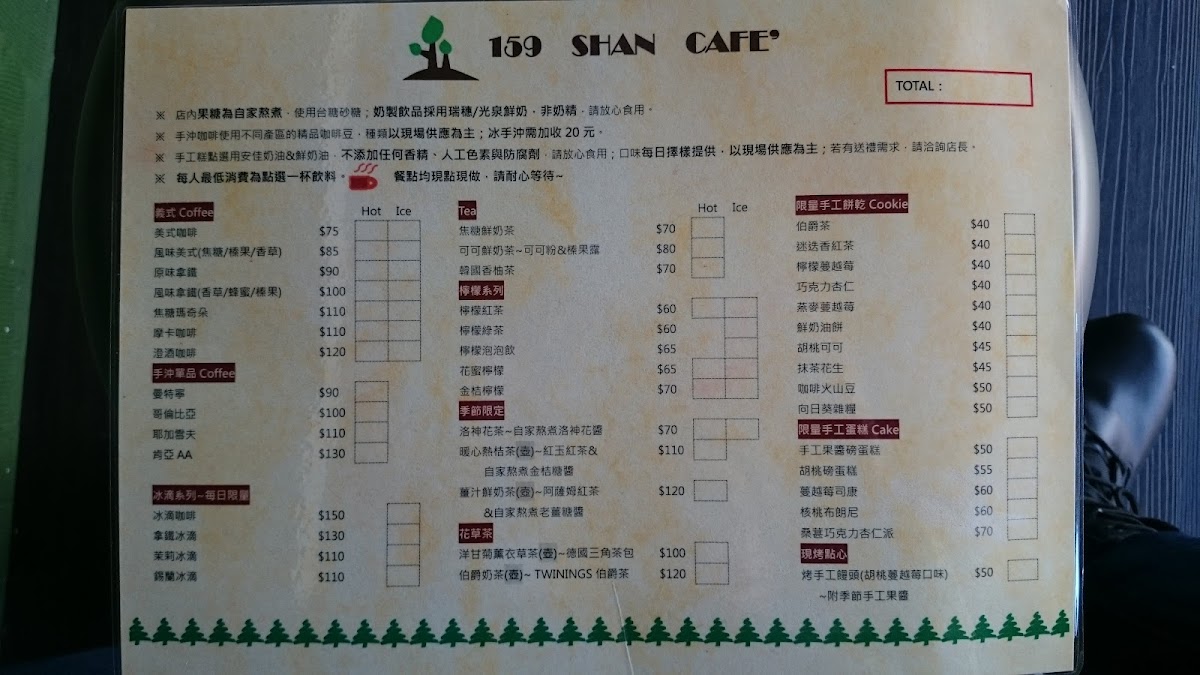 159 SHAN CAFE'
TOTAL：
※ 店內果糖為自家熬煮，使用台糖砂糖；奶製飲品採用瑞穗/光泉鮮奶，非奶精，請放心食用。
※ 手沖咖啡使用不同產區的精品咖啡豆，種類以現場供應為主；冰手沖需加收 20 元。
※ 手工糕點選用安佳奶油&鮮奶油，不添加任何香精、人工色素與防腐劑，請放心食用；口味每日擇樣提供，以現場供應為主；若有送禮需求，請洽詢店長。
※ 每人最低消費為點選一杯飲料。 餐點均現點現做，請耐心等待~
義式 Coffee Hot Ice
美式咖啡 $75
風味美式(焦糖/榛果/香草) $85
原味拿鐵 $90
風味拿鐵(香草/蜂蜜/榛果) $100
焦糖瑪奇朵 $110
摩卡咖啡 $110
澄酒咖啡 $120
手沖單品 Coffee
曼特寧 $90
哥倫比亞 $100
耶加雪夫 $110
肯亞 AA $130
冰滴系列~每日限量
冰滴咖啡 $150
拿鐵冰滴 $130
茉莉冰滴 $110
錫蘭冰滴 $110
Tea Hot Ice
焦糖鮮奶茶 $70
可可鮮奶茶~可可粉&榛果露 $80
韓國香柚茶 $70
檸檬系列
檸檬紅茶 $60
檸檬綠茶 $60
檸檬泡泡飲 $65
花蜜檸檬 $65
金桔檸檬 $70
季節限定
洛神花茶~自家熬煮洛神花醬 $70
暖心熱桔茶(壺)~紅玉紅茶& $110
自家熬煮金桔糖醬
薑汁鮮奶茶(壺)~阿薩姆紅茶 $120
&自家熬煮老薑糖醬
花草茶
洋甘菊薰衣草茶(壺)~德國三角茶包 $100
伯爵奶茶(壺)~ TWININGS 伯爵茶 $120
限量手工餅乾 Cookie
伯爵茶 $40
迷迭香紅茶 $40
檸檬蔓越莓 $40
巧克力杏仁 $40
燕麥蔓越莓 $40
鮮奶油餅 $40
胡桃可可 $45
抹茶花生 $45
咖啡火山豆 $50
向日葵雜糧 $50
限量手工蛋糕 Cake
手工果醬磅蛋糕 $50
胡桃磅蛋糕 $55
蔓越莓司康 $60
核桃布朗尼 $60
桑葚巧克力杏仁派 $70
現烤點心
烤手工饅頭(胡桃蔓越莓口味) $50
~附季節手工果醬